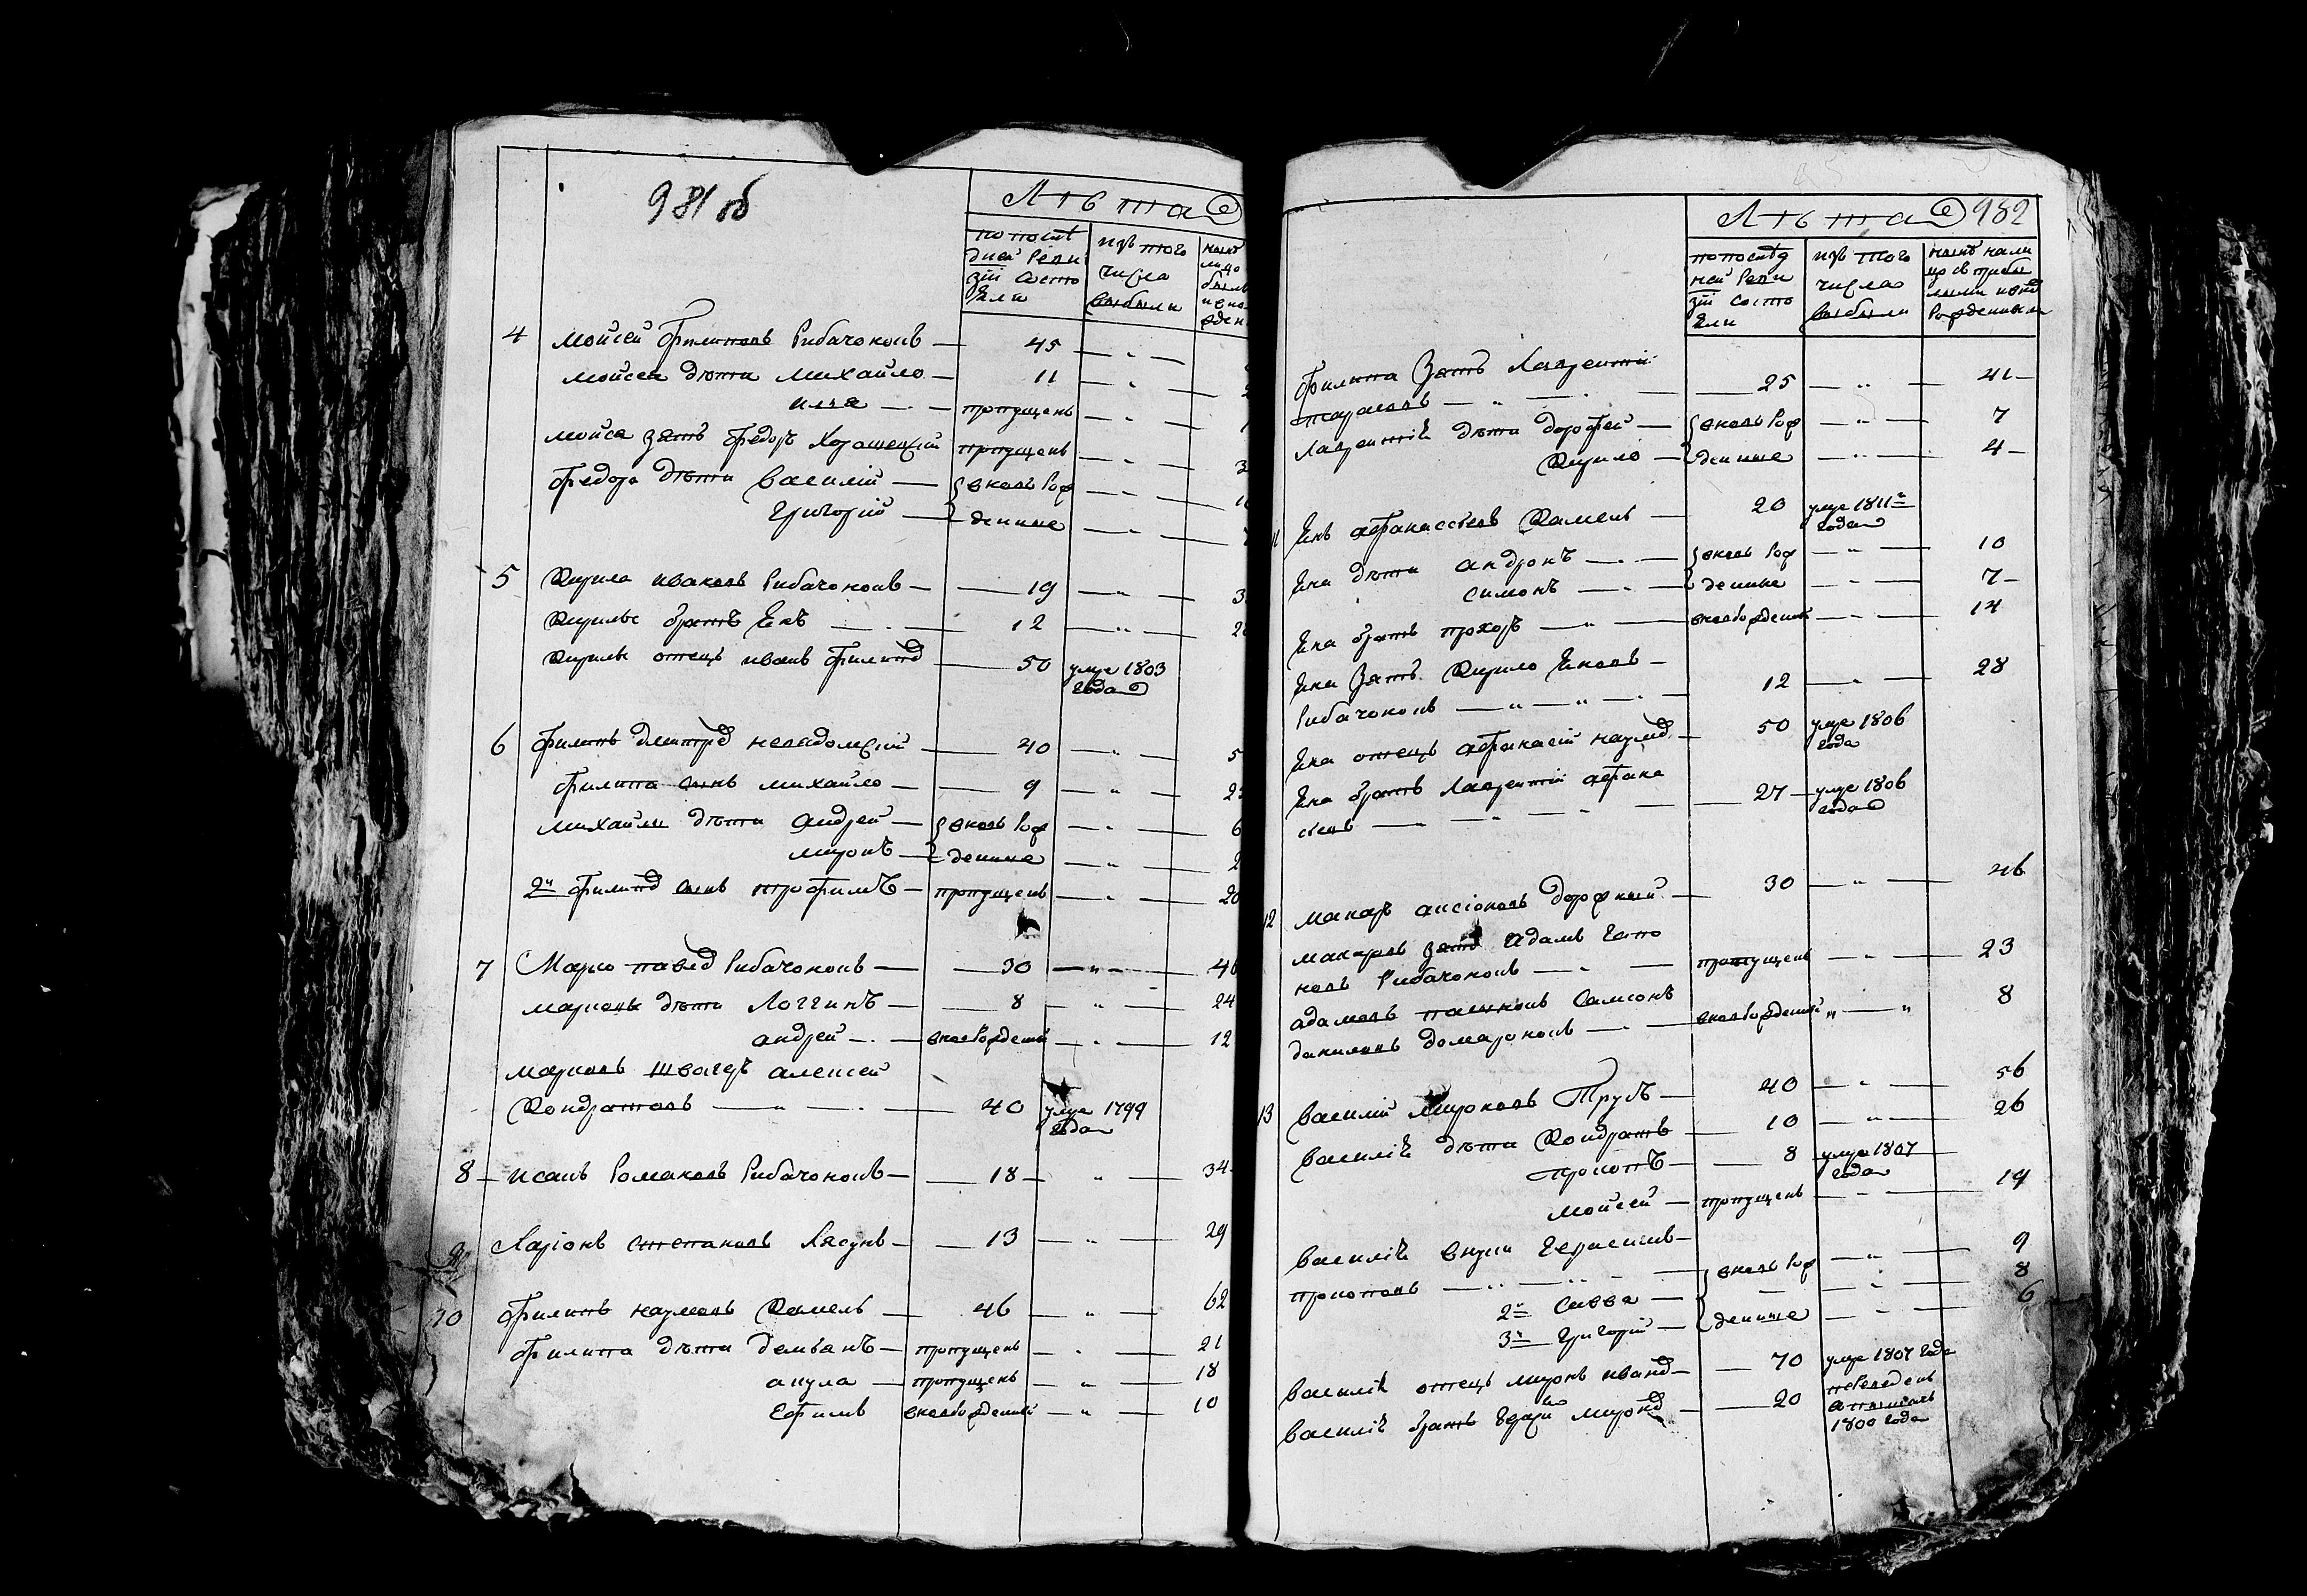 981 об
Лѣта
по послѣ
дней реви
зіи состо
яли
изъ того
числа
выбыли
4 Мойсей Филиповъ Рибачонокъ — 45 — „ —
Мойсея дѣти Михайло — 11 — „ —
Илля — пропущенъ — „ —
Мойсея зять Федоръ пропущенъ — „ —
Федора дѣти Василій — { вновь рож — „ —
Григорій — { денные — „ —
5 Кирила Ивановъ Рибачонокъ — 19 — „ — 3
Кирилы братъ Янъ — 12 — „ — 2
Кирилы отецъ Иванъ Филипов — 50 умре 1803
года
6 Филипъ Дмитров — 40 — „ — 5
Филипа сынъ Михайло — 9 — „ — 2
Михайлы дѣти Андрей — { вновь рож — „ — 6
Миронъ — { денные — „ — 2
2й Филипов сынъ Трофимъ — пропущенъ — „ — 20
7 Марко Павлов Рибачонокъ — 30 — „ — 46
Марковы дѣти Логгинъ — 8 — „ — 24
Андрей — вновьрожденный — „ — 12
Марковъ швагеръ Алексей
Кондратовъ — „ — 40 умре 1799
года
8 Исакъ Романовъ Рибачонокъ — 18 — „ — 34
9 Ларіонъ Степановъ Лясунъ — 13 — „ — 29
10 Филипъ Наумовъ Камель — 46 — „ — 62
Филипа дѣти Демьянъ — пропущенъ — „ — 21
Акула — пропущенъ — „ — 18
Ефимъ вновьрожденный — „ — 10
Лѣта 982
по послѣд
ней реви
зіи состо
яли
изъ того
числа
выбыли
нынѣ нали
цо съ прибы
лыми и вновь
рожденными
Филипа зять Лаврентій
Тарасовъ — „ — 25 — „ — 41 —
Лаврентія дѣти Дорофей — { вновь рож — „ — 7
Кирило — { денные — „ — 4 —
11 Янъ Афанасьевъ Камель — 20 умре 1811го
года
Яна дѣти Андронъ — { вновь рож — „ — 10
Симонъ — { денные — „ — 7 —
Яна братъ Прохоръ — „ — вновьрожденный — „ — 14
Яна зять Кирило Яновъ —
Рибачонокъ — „ — „ — 12 — „ — 28
Яна отецъ Афанасій Наумов — 50 умре 1806
года
Яна братъ Лаврентій Афана
сьевъ — „ — 27 — умре 1806
года
12 Макаръ Аксіоновъ — 30 — „ — 46
Макаровъ зять Адамъ
Рибачонокъ — „ — пропущенъ — „ — 23
Адамовъ Самсонъ
Даниловъ Домаронокъ — вновьрожденный „ — „ 8
13 Василій Мироновъ Трубъ — 40 — „ — 56
Василія дѣти Кондратъ — 10 — „ — 26
Прокопъ — 8 умре 1807
года
Мойсей — пропущенъ — „ — 19
Василія внуки Герасимъ —
Прокоповъ — „ — { вновь рож — „ — 9
2й Савва — — „ — 8
3й Григорій — { денные — „ — 6
Василія отецъ Миронъ Иванов — 70 умре 1807 года
Василія братъ Миронов — 20 переведенъ
1800 года